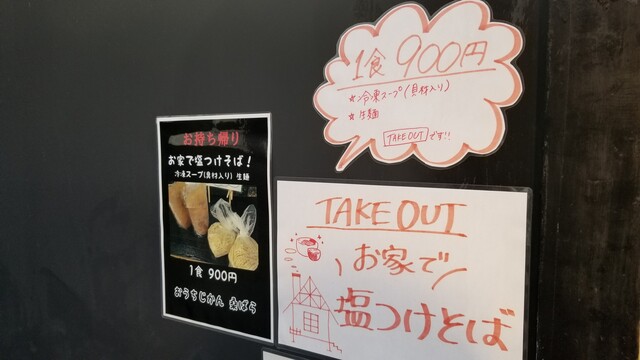 1食 900円
☆冷凍スープ(具材入り)
☆生麺
TAKEOUTです!!
お持ち帰り
お家で塩つけそば!
冷凍スープ(具材入り) 生麺
1食 900円
おうちじかん 桑ばら
TAKE OUT
お家で
塩つけそば